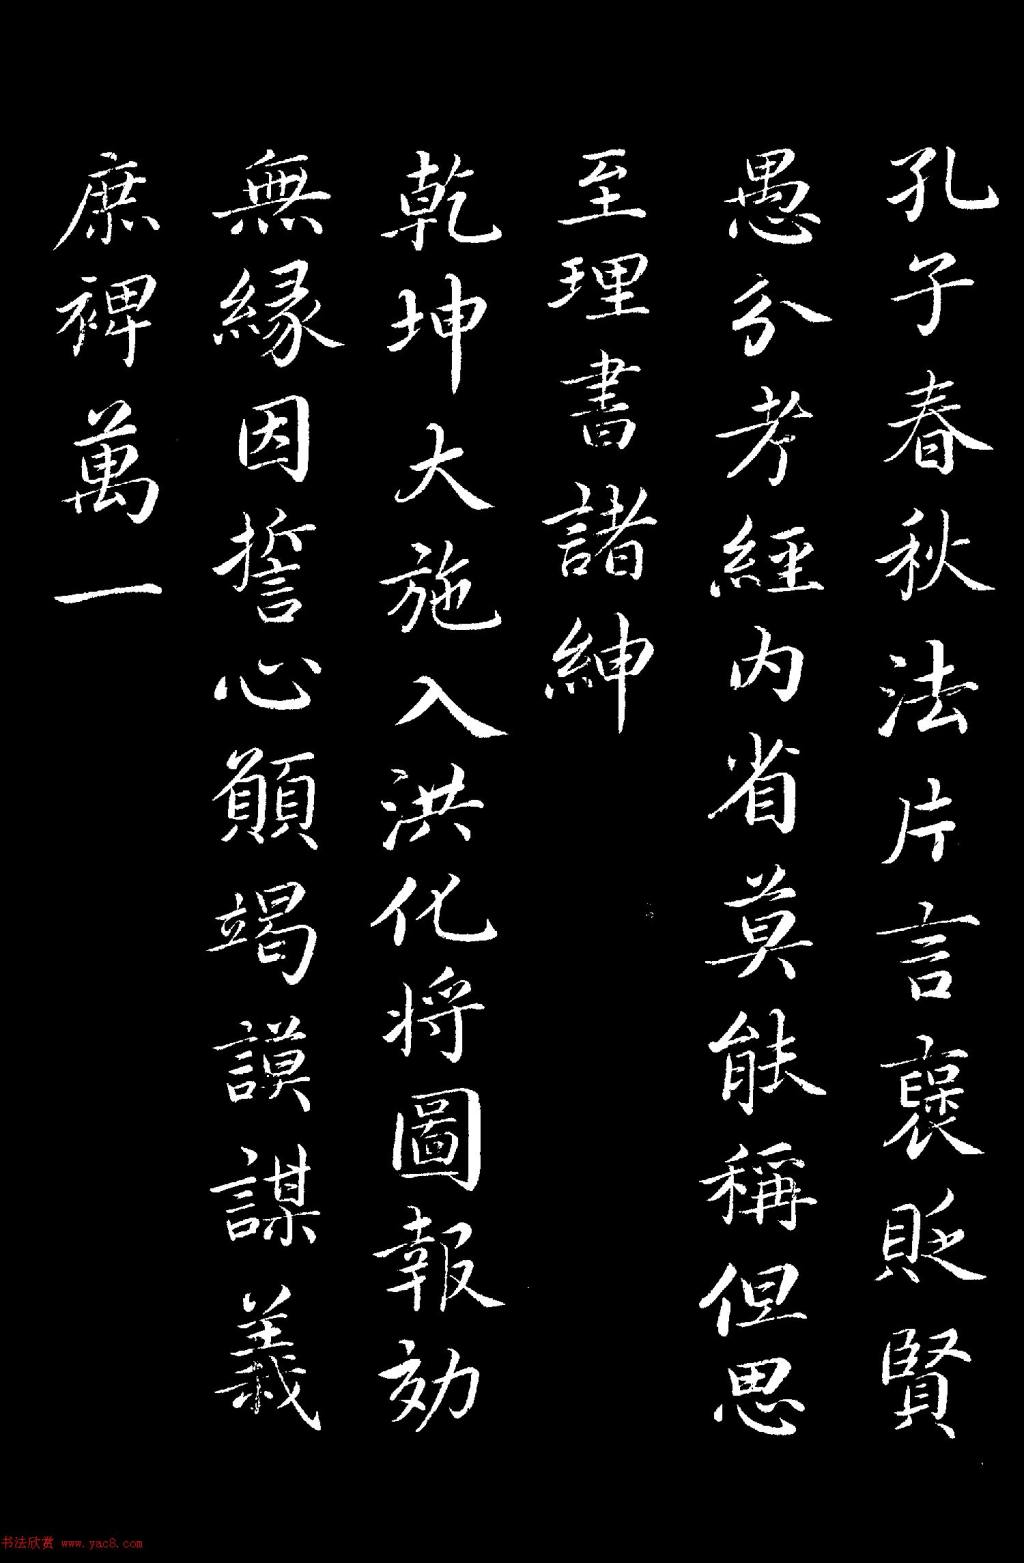 孔子春秋法片言襃貶賢
愚分考經内省莫能稱但思
至理書諸紳
乾坤大施入洪化将圖報効
無縁因誓心願竭謨謀義
庶裨萬一
书法欣赏 www.yac8.com